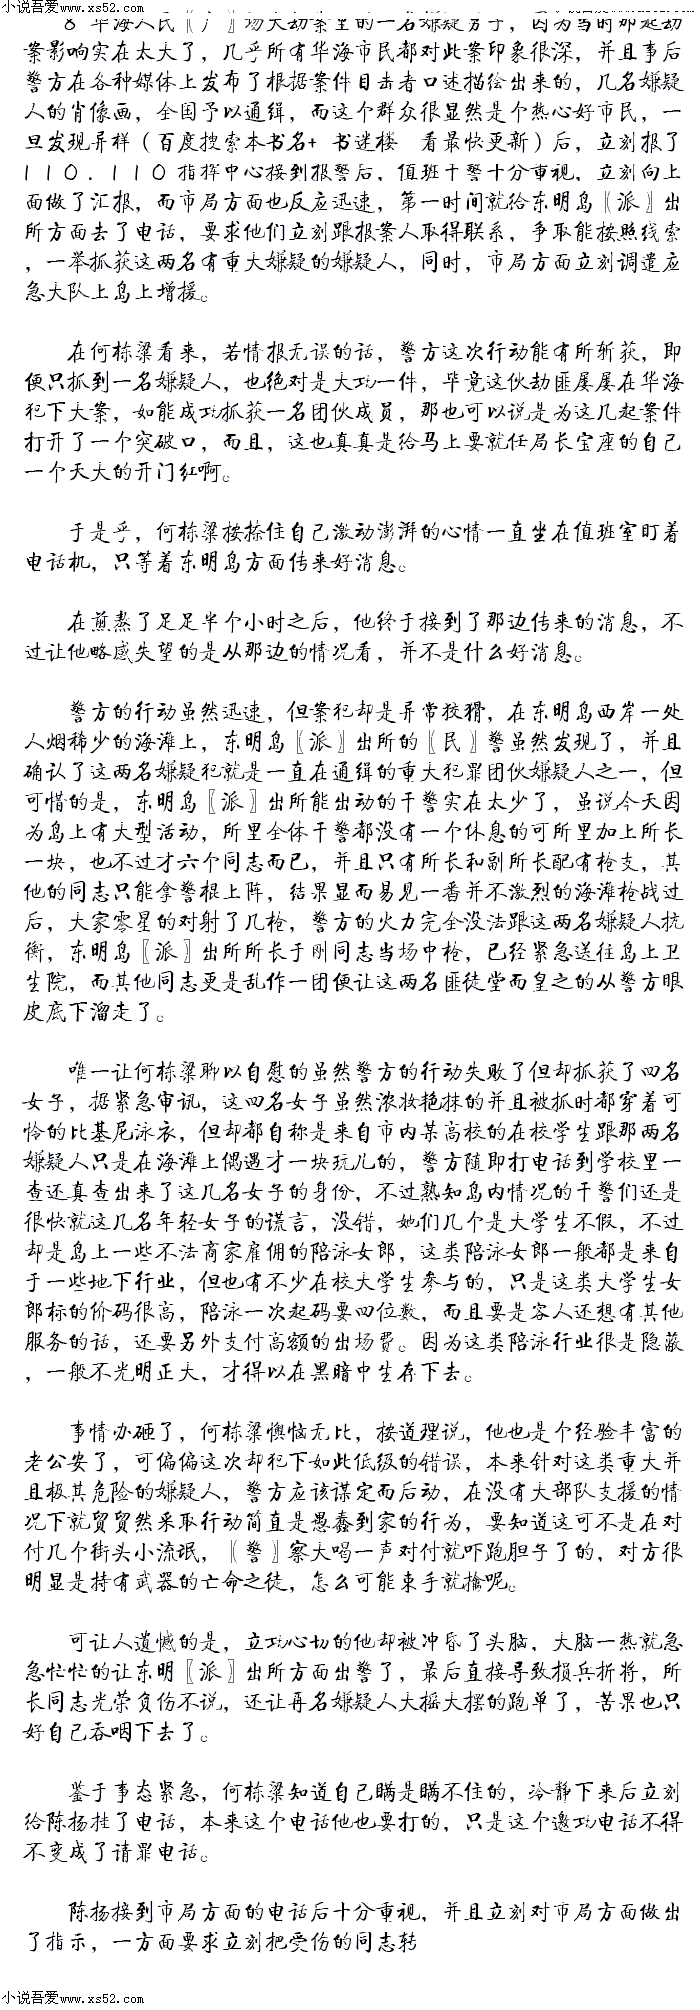 小说吾爱 www.xs52.com
小说吾爱 www.xs52.com
8 华海人民〖广〗场大劫案里的一名嫌疑男子，因为当时那起劫
案影响实在太大了，几乎所有华海市民都对此案印象很深，并且事后
警方在各种媒体上发布了根据案件目击者口述描绘出来的，几名嫌疑
人的肖像画，全国予以通缉，而这个群众很显然是个热心好市民，一
旦发现异样（百度搜索本书名+ 书迷楼 看最快更新）后，立刻报了
110．110指挥中心接到报警后，值班干警十分重视，立刻向上
面做了汇报，而市局方面也反应迅速，第一时间就给东明岛〖派〗出
所方面去了电话，要求他们立刻跟报案人取得联系，争取能按照线索
，一举抓获这两名有重大嫌疑的嫌疑人，同时，市局方面立刻调遣应
急大队上岛上增援。
在何栋梁看来，若情报无误的话，警方这次行动能有所斩获，即
便只抓到一名嫌疑人，也绝对是大功一件，毕竟这伙劫匪屡屡在华海
犯下大案，如能成功抓获一名团伙成员，那也可以说是为这几起案件
打开了一个突破口，而且，这也真真是给马上要就任局长宝座的自己
一个天大的开门红啊。
于是乎，何栋梁按捺住自己激动澎湃的心情一直坐在值班室盯着
电话机，只等着东明岛方面传来好消息。
在煎熬了足足半个小时之后，他终于接到了那边传来的消息，不
过让他略感失望的是从那边的情况看，并不是什么好消息。
警方的行动虽然迅速，但案犯却是异常狡猾，在东明岛西岸一处
人烟稀少的海滩上，东明岛〖派〗出所的〖民〗警虽然发现了，并且
确认了这两名嫌疑犯就是一直在通缉的重大犯罪团伙嫌疑人之一，但
可惜的是，东明岛〖派〗出所能出动的干警实在太少了，虽说今天因
为岛上有大型活动，所里全体干警都没有一个休息的可所里加上所长
一块，也不过才六个同志而已，并且只有所长和副所长配有枪支，其
他的同志只能拿警棍上阵，结果显而易见一番并不激烈的海滩枪战过
后，大家零星的对射了几枪，警方的火力完全没法跟这两名嫌疑人抗
衡，东明岛〖派〗出所所长于刚同志当场中枪，已经紧急送往岛上卫
生院，而其他同志更是乱作一团便让这两名匪徒堂而皇之的从警方眼
皮底下溜走了。
唯一让何栋梁聊以自慰的虽然警方的行动失败了但却抓获了四名
女子，据紧急审讯，这四名女子虽然浓妆艳抹的并且被抓时都穿着可
怜的比基尼泳衣，但却都自称是来自市内某高校的在校学生跟那两名
嫌疑人只是在海滩上偶遇才一块玩儿的，警方随即打电话到学校里一
查还真查出来了这几名女子的身份，不过熟知岛内情况的干警们还是
很快就这几名年轻女子的谎言，没错，她们几个是大学生不假，不过
却是岛上一些不法商家雇佣的陪泳女郎，这类陪泳女郎一般都是来自
于一些地下行业，但也有不少在校大学生参与的，只是这类大学生女
郎标的价码很高，陪泳一次起码要四位数，而且要是客人还想有其他
服务的话，还要另外支付高额的出场费。因为这类陪泳行业很是隐蔽
，一般不光明正大，才得以在黑暗中生存下去。
事情办砸了，何栋梁懊恼无比，按道理说，他也是个经验丰富的
老公安了，可偏偏这次却犯下如此低级的错误，本来针对这类重大并
且极其危险的嫌疑人，警方应该谋定而后动，在没有大部队支援的情
况下就贸贸然采取行动简直是愚蠢到家的行为，要知道这可不是在对
付几个街头小流氓，〖警〗察大喝一声对付就吓跑胆子了的，对方很
明显是持有武器的亡命之徒，怎么可能束手就擒呢。
可让人遗憾的是，立功心切的他却被冲昏了头脑，大脑一热就急
急忙忙的让东明〖派〗出所方面出警了，最后直接导致损兵折将，所
长同志光荣负伤不说，还让再名嫌疑人大摇大摆的跑单了，苦果也只
好自己吞咽下去了。
鉴于事态紧急，何栋梁知道自己瞒是瞒不住的，冷静下来后立刻
给陈扬挂了电话，本来这个电话他也要打的，只是这个邀功电话不得
不变成了请罪电话。
陈扬接到市局方面的电话后十分重视，并且立刻对市局方面做出
了指示，一方面要求立刻把受伤的同志转
小说吾爱 www.xs52.com
小说吾爱 www.xs52.com